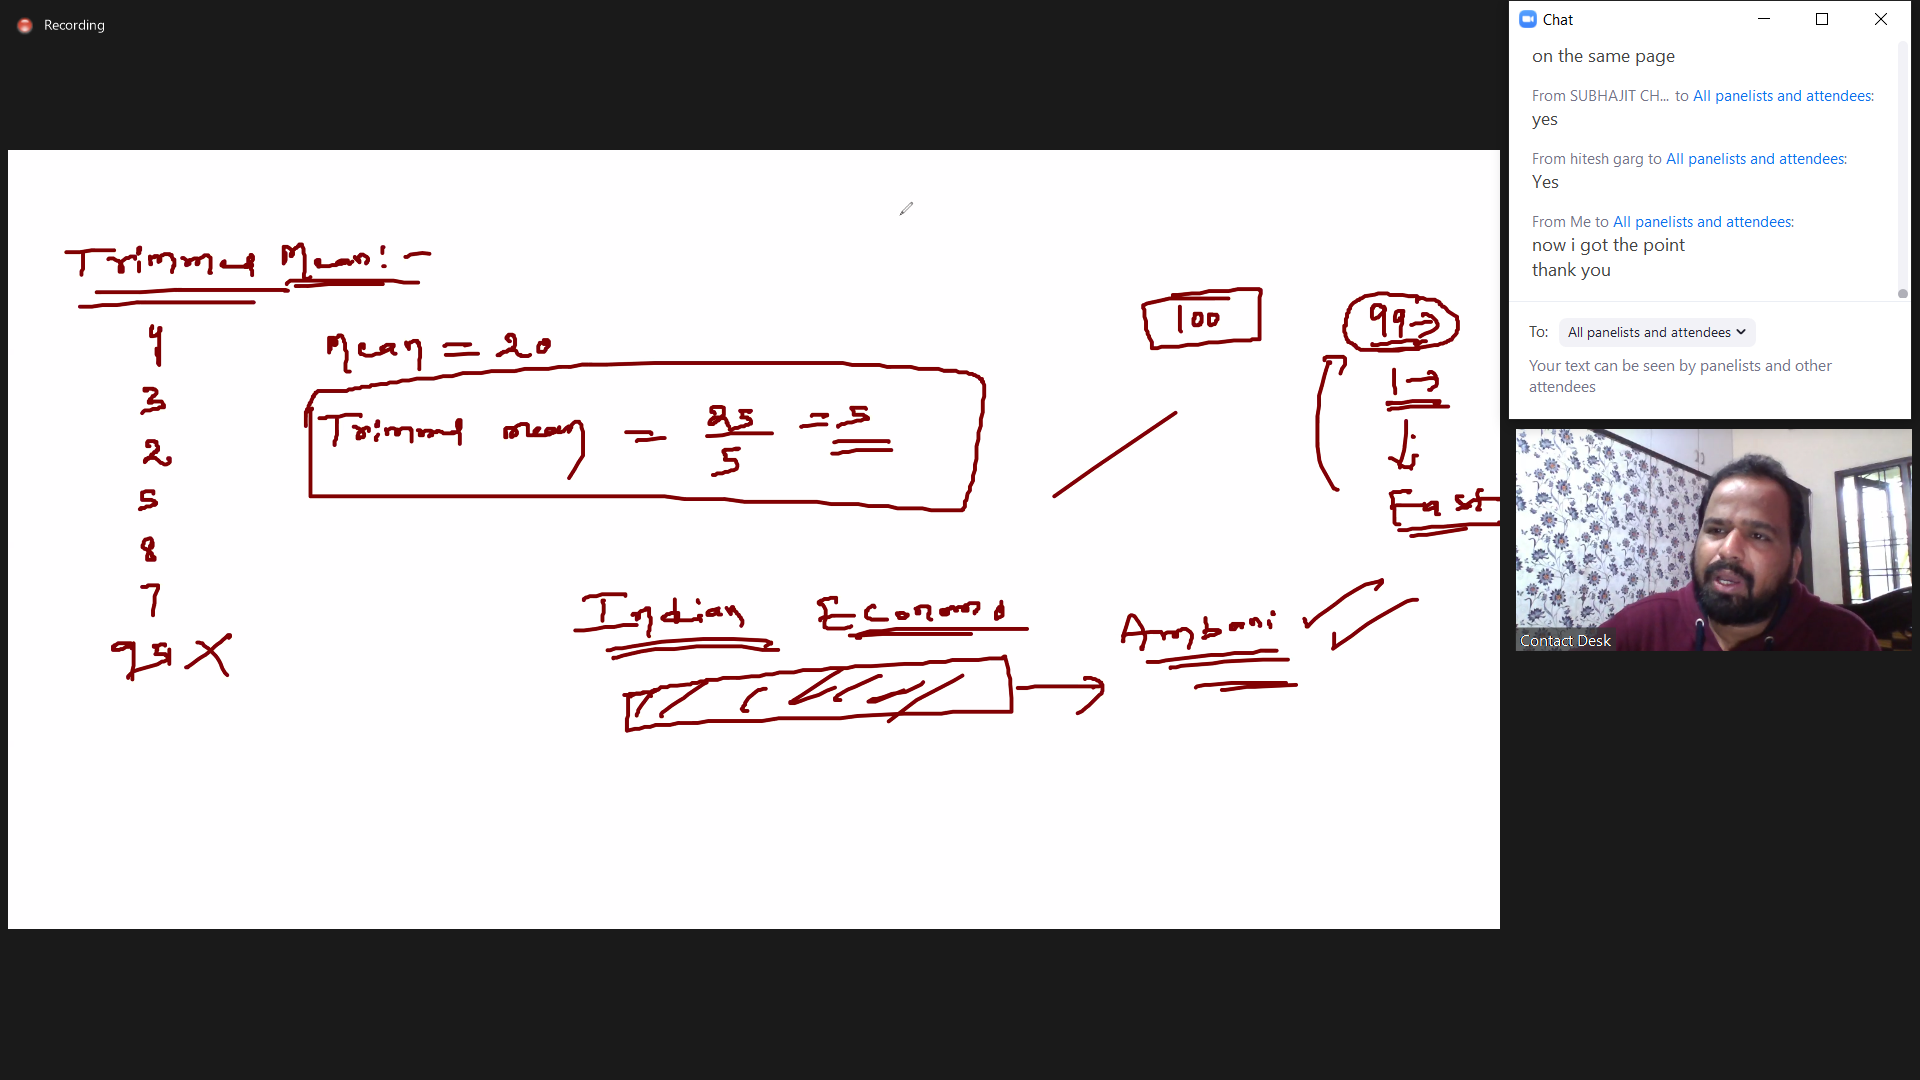 Recording
Trimmed Mean:-
4
3
2
5
8
7
95 X
Mean = 20
Trimmed mean = 25/5 = 5
100
99→
1→
Fast
Indian Econom
Ambani
Chat
on the same page
From SUBHAJIT CH... to All panelists and attendees:
yes
From hitesh garg to All panelists and attendees:
Yes
From Me to All panelists and attendees:
now i got the point
thank you
To: All panelists and attendees
Your text can be seen by panelists and other
attendees
Contact Desk